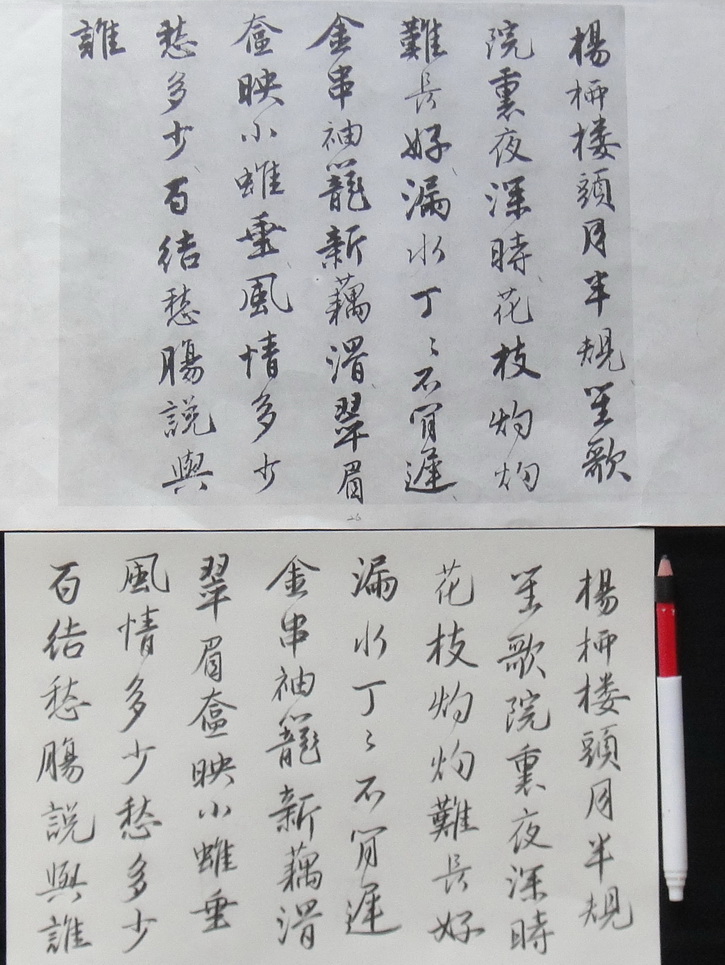 楊栁楼頭月半規笙歌
院裏夜深時花枝灼灼
難長好漏水丁〻不肯遲
金串袖籠新藕滑翠眉
奩映小蜼垂風情多少
愁多少百結愁腸說與
誰
楊栁楼頭月半規
笙歌院裏夜深時
花枝灼灼難長好
漏水丁〻不肯遲
金串袖籠新藕滑
翠眉奩映小蜼垂
風情多少愁多少
百結愁腸說與誰